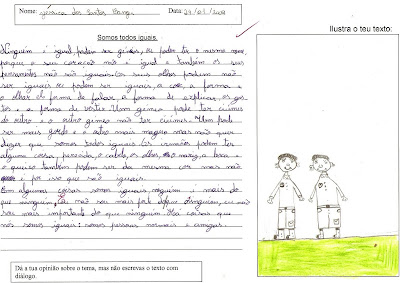 Nome: Jéssica dos Santos Data 29/01/2008
Ilustra o teu texto:
Somos todos iguais.
Ninguém é igual, podem ser gémeos, podem ter o mesmo nome
porque o seu coração não é igual e também os seus
pensamentos não são iguais. Os seus olhos podem não
ser iguais, podem ser iguais, a cor, a forma e
o olhar, a forma de falar, a forma de explicar, os gos-
tos, a forma de vestir. Um gémeo pode ter ciúmes
do outro e o outro gémeo não ter ciúmes. Um pode
ser mais gordo e o outro mais magro mas não quer
dizer que somos todos iguais. Os irmãos podem ter
alguma coisa parecida, o cabelo, os olhos, o nariz, a boca e
o queixo também podem ser da mesma cor mas não
é por isso que são iguais.
Em algumas coisas somos iguais ninguém é mais do
que ninguém. Eu não sou mais
sou mais importante do que ninguém. Há coisas que
nós somos iguais: somos pessoas normais e amigas.
Dá a tua opinião sobre o tema, mas não escrevas o texto com
diálogo.